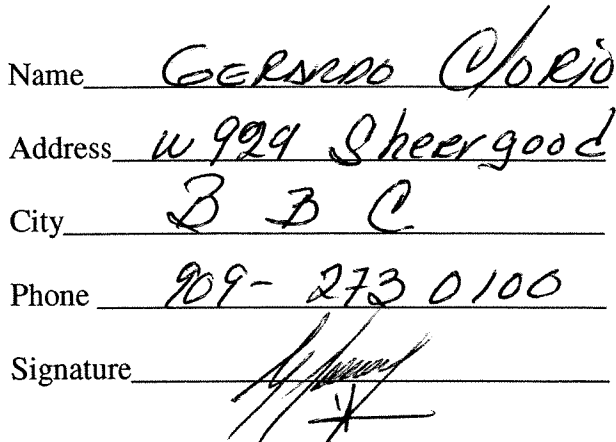 Name GERARDO C/ORIO
Address W 929 Sheergood
City B B C
Phone 909- 273 0100
Signature